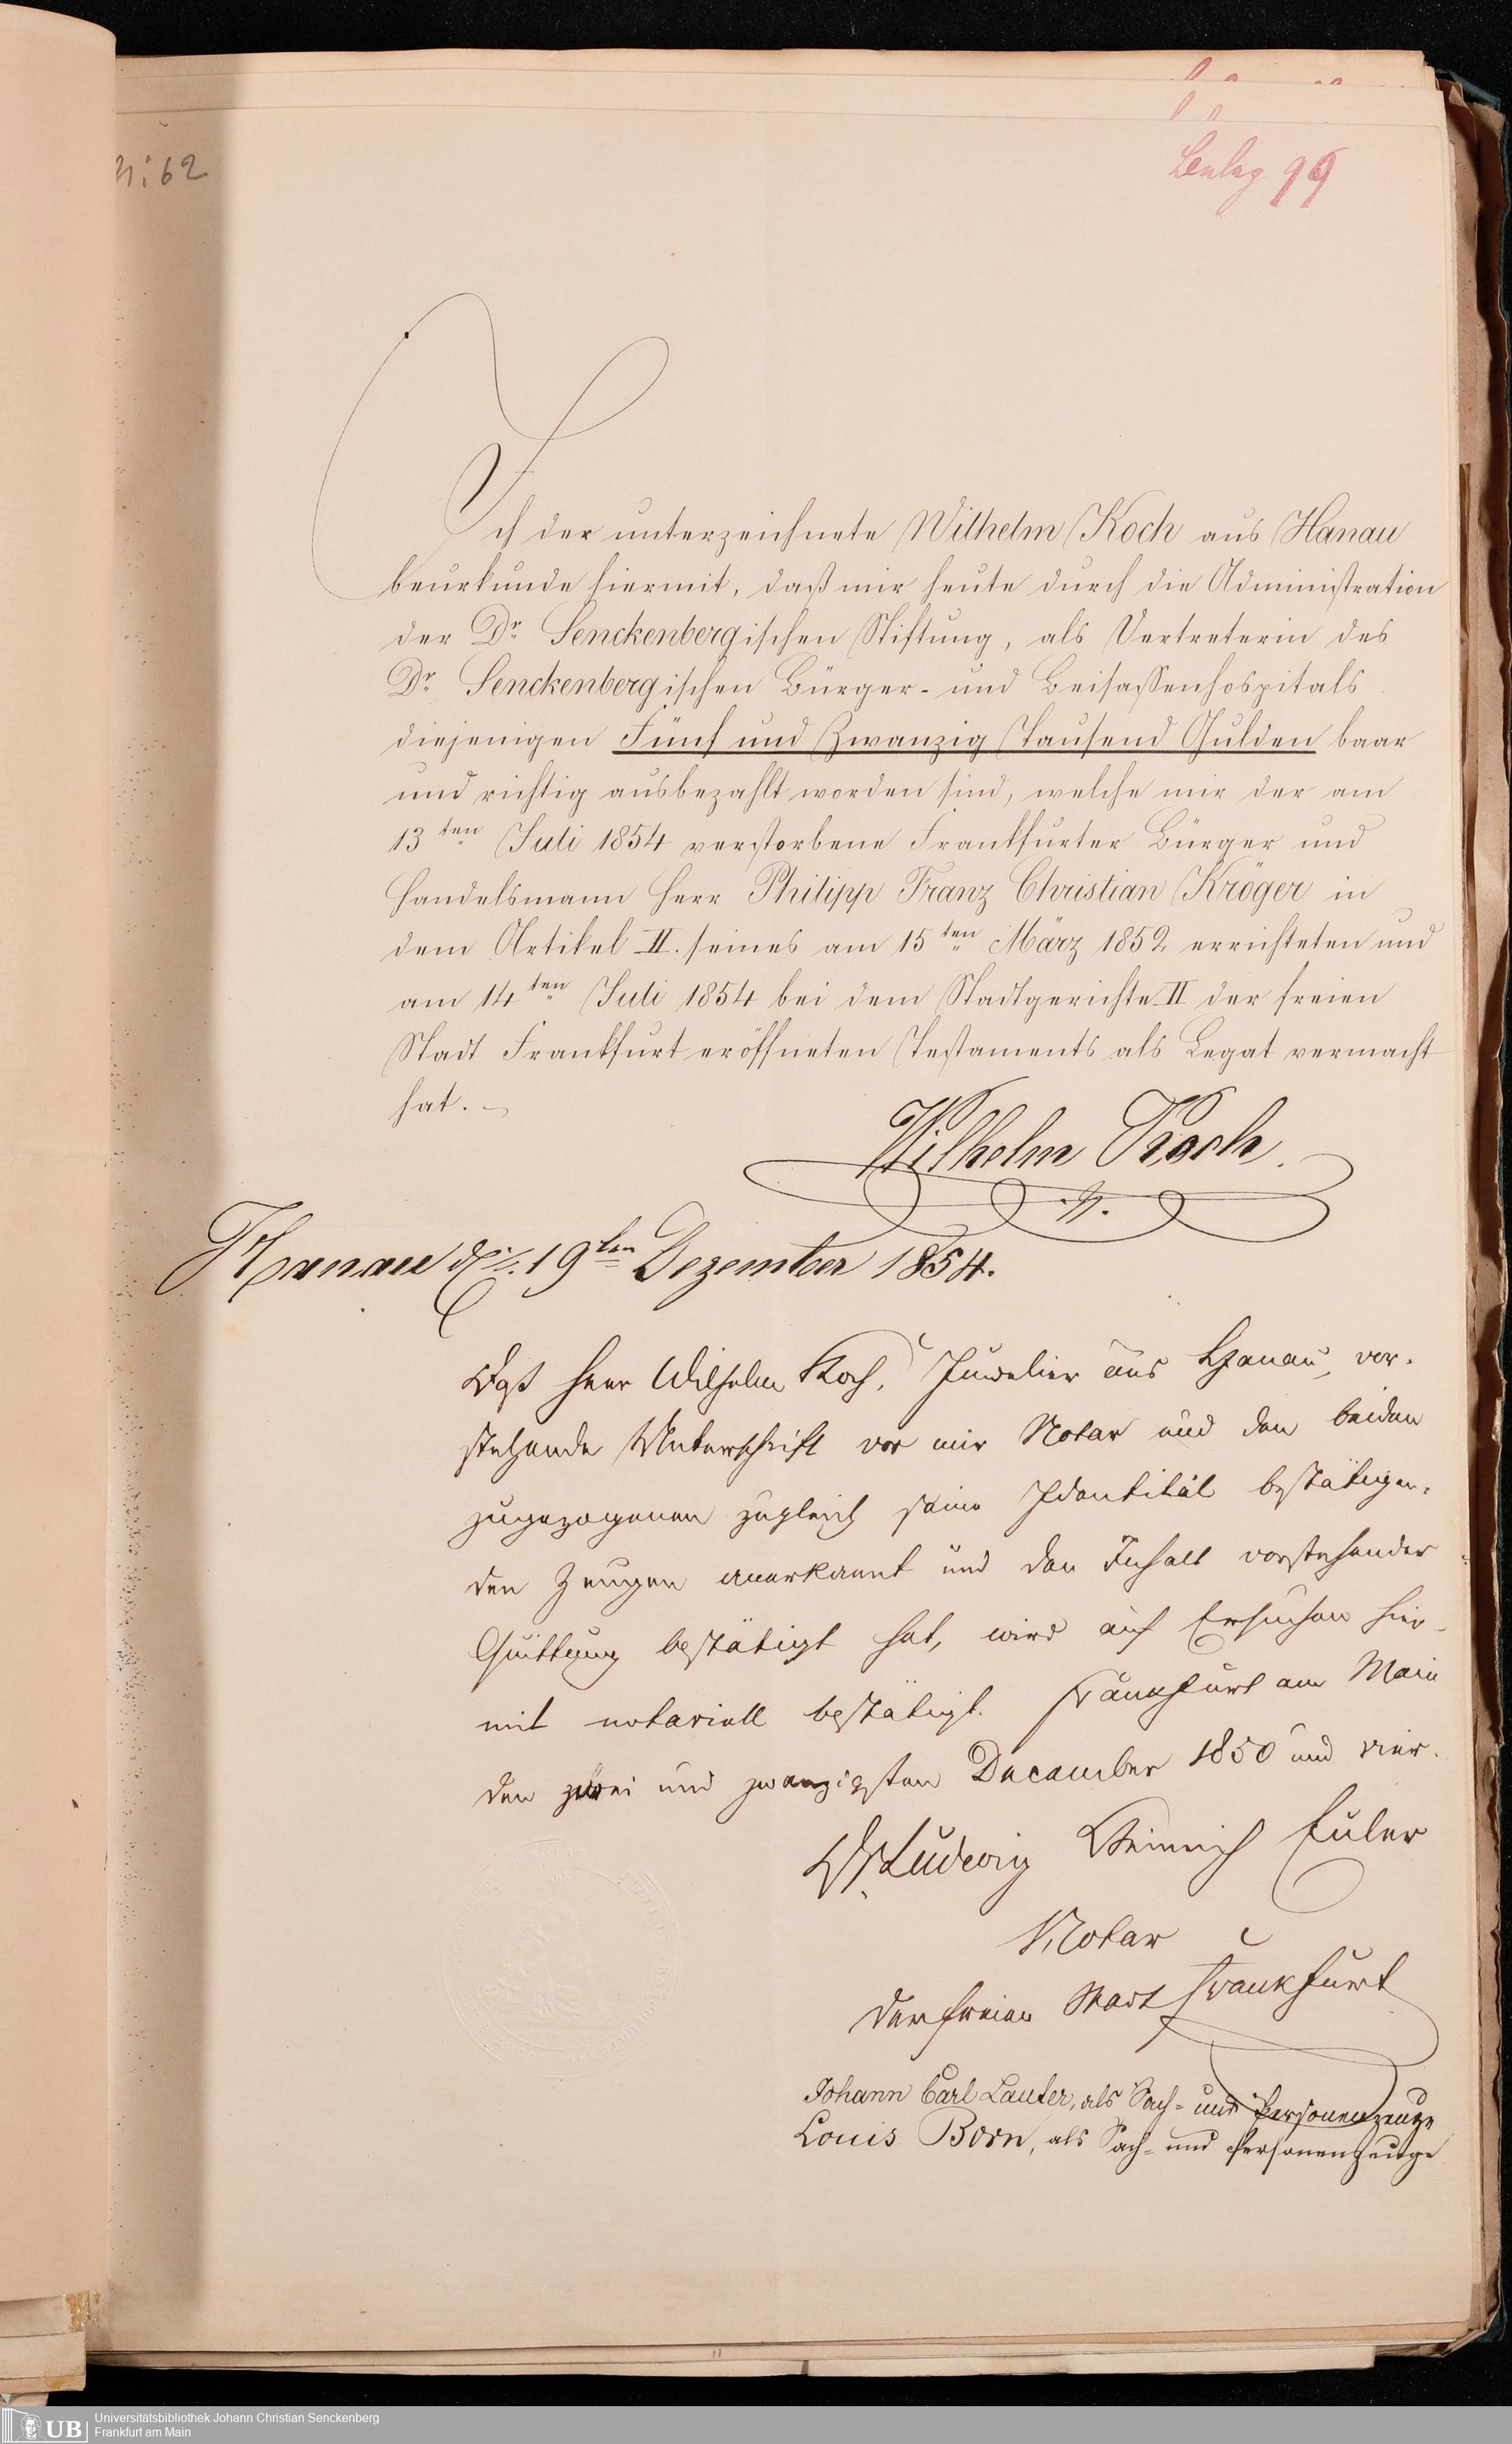 N: 62
Beylag 99
Ich der unterzeichnete Wilhelm Koch aus Hanau
beurkunde hiermit, daß mir heute durch die Administration
der Dr. Senckenbergischen Stiftung, als Vertreterin des
Dr. Senckenbergischen Bürger- und Beisassenhospitals
diejenigen Fünf und Zwanzig Tausend Gulden baar
und richtig ausbezahlt worden sind, welche mir der am
13ten Juli 1854 verstorbene Frankfurter Bürger und
Handelsmann Herr Philipp Franz Christian Kröger in
dem Artikel II. seines am 15ten März 1852 errichteten und
am 14ten Juli 1854 bei dem Stadtgerichte II der freien
Stadt Frankfurt eröffneten Testaments als Legat vermacht
hat. –
Wilhelm Koch.
Hanau d. 19ten Dezember 1854.
Daß Herr Wilhelm Koch, Juwelier aus Hanau, vor-
stehende Unterschrift vor mir Notar und den beiden
zugezogenen zugleich seine Identität bestätigen-
den Zeugen anerkannt und den Inhalt vorstehender
Quittung bestätigt hat, wird auf Ersuchen hier-
mit notariell bestätigt. Frankfurt am Main
den zwei und zwanzigsten December 1850 und vier.
Dr. Ludwig Heinrich Euler
Notar
der freien Stadt Frankfurt
Johann Carl Lauter, als Sach- und Personenzeuge
Louis Born, als Sach- und Personenzeuge
UB
Universitätsbibliothek Johann Christian Senckenberg
Frankfurt am Main